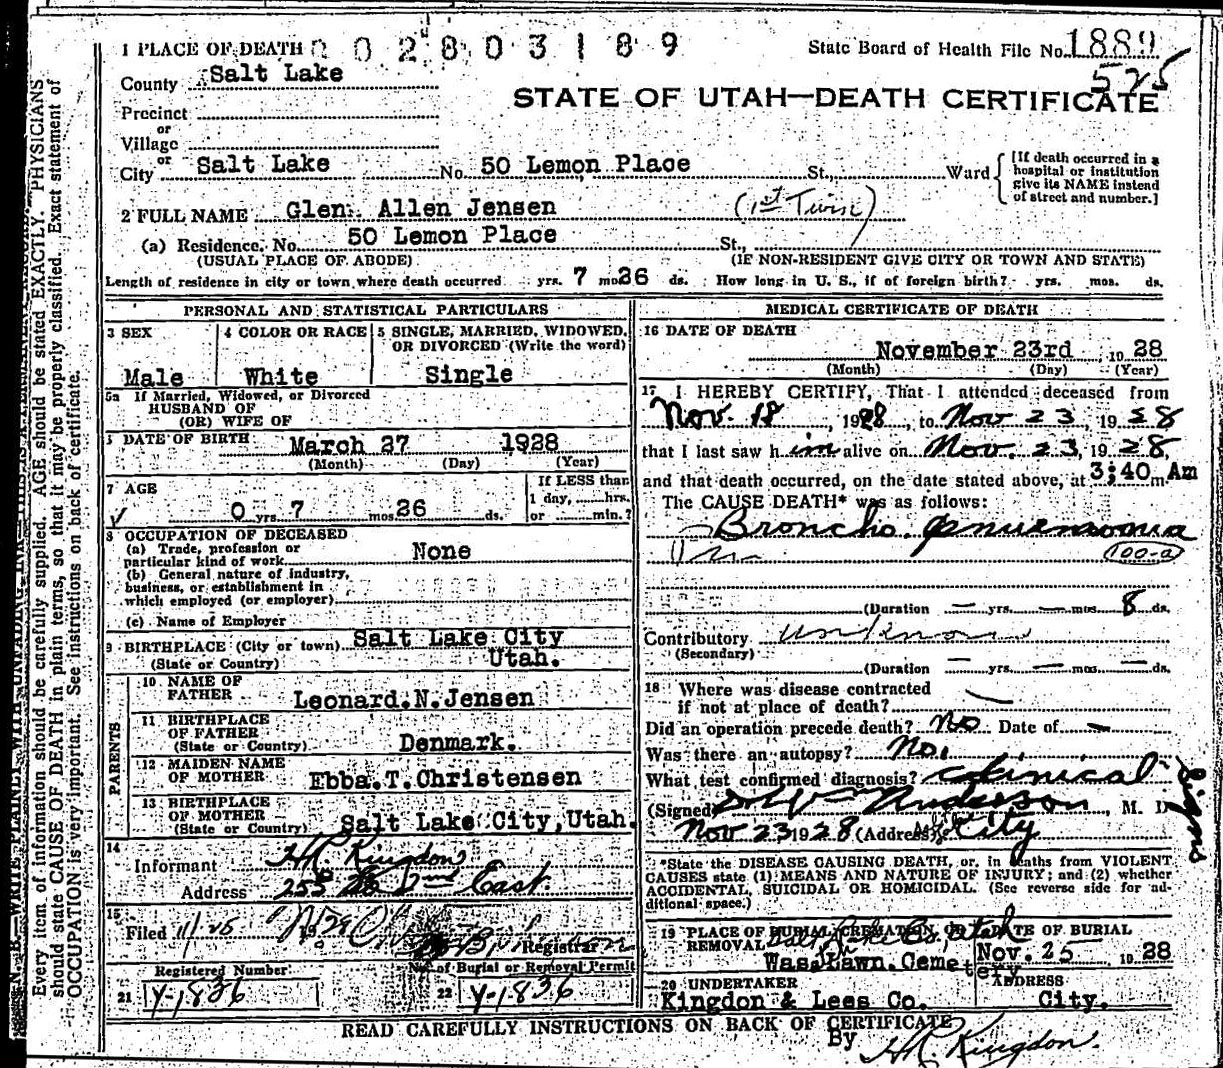 1 PLACE OF DEATH 002803189 State Board of Health File No. 1889
County Salt Lake 525
STATE OF UTAH—DEATH CERTIFICATE
Precinct
or
Village
or
City Salt Lake No. 50 Lemon Place St., Ward
[If death occurred in a
hospital or institution
give its NAME instead
of street and number.]
2 FULL NAME Glen Allen Jensen (1st Twin)
(a) Residence. No. 50 Lemon Place St.,
(USUAL PLACE OF ABODE) (IF NON-RESIDENT GIVE CITY OR TOWN AND STATE)
Length of residence in city or town where death occurred yrs. 7 mos. 26 ds. How long in U. S., if of foreign birth? yrs. mos. ds.
PERSONAL AND STATISTICAL PARTICULARS
3 SEX 4 COLOR OR RACE 5 SINGLE, MARRIED, WIDOWED,
OR DIVORCED (Write the word)
Male White Single
5a If Married, Widowed, or Divorced
HUSBAND OF
(OR) WIFE OF
DATE OF BIRTH March 27 1928
(Month) (Day) (Year)
7 AGE If LESS than
1 day, hrs.
0 yrs. 7 mos. 26 ds. or min.?
8 OCCUPATION OF DECEASED
(a) Trade, profession or
particular kind of work None
(b) General nature of industry,
business, or establishment in
which employed (or employer)
(c) Name of Employer
9 BIRTHPLACE (City or town) Salt Lake City
(State or Country) Utah.
PARENTS
10 NAME OF
FATHER Leonard.N.Jensen
11 BIRTHPLACE
OF FATHER
(State or Country) Denmark.
12 MAIDEN NAME
OF MOTHER Ebba.T.Christensen
13 BIRTHPLACE
OF MOTHER
(State or Country) Salt Lake City,Utah.
14
Informant HR Kingdon
Address 255 So 2nd East.
15
Filed Registrar
Registered Number No. of Burial or Removal Permit
21 Y-1836 22 Y-1836
MEDICAL CERTIFICATE OF DEATH
16 DATE OF DEATH
November 23rd 1928
(Month) (Day) (Year)
17 I HEREBY CERTIFY, That I attended deceased from
Nov. 18, 1928, to Nov 23, 1928
that I last saw h im alive on Nov. 23, 1928,
and that death occurred, on the date stated above, at 3:40 m. Am
The CAUSE DEATH* was as follows:
Broncho. pnuemonia
100-a
(Duration — yrs. — mos. 8 ds.
Contributory unknown
(Secondary)
(Duration — yrs. — mos. — ds.
18 Where was disease contracted
if not at place of death?
Did an operation precede death? No Date of —
Was there an autopsy? No.
What test confirmed diagnosis? Clinical Signs
(Signed) Anderson, M. D
Nov 23 1928 (Address) City
*State the DISEASE CAUSING DEATH, or, in deaths from VIOLENT
CAUSES state (1) MEANS AND NATURE OF INJURY; and (2) whether
ACCIDENTAL, SUICIDAL OR HOMICIDAL. (See reverse side for ad-
ditional space.)
19 PLACE OF BURIAL, CREMATION, OR DATE OF BURIAL
REMOVAL Salt Lake Co, Utah
Was.Lawn.Cemetery Nov. 25 1928
20 UNDERTAKER ADDRESS
Kingdon & Lees Co. City.
READ CAREFULLY INSTRUCTIONS ON BACK OF CERTIFICATE
By HR Kingdon.
N. B.—WRITE PLAINLY WITH UNFADING INK
Every item of information should be carefully supplied. AGE should be stated EXACTLY. PHYSICIANS
should state CAUSE OF DEATH in plain terms, so that it may be properly classified. Exact statement of
OCCUPATION is very important. See instructions on back of certificate.